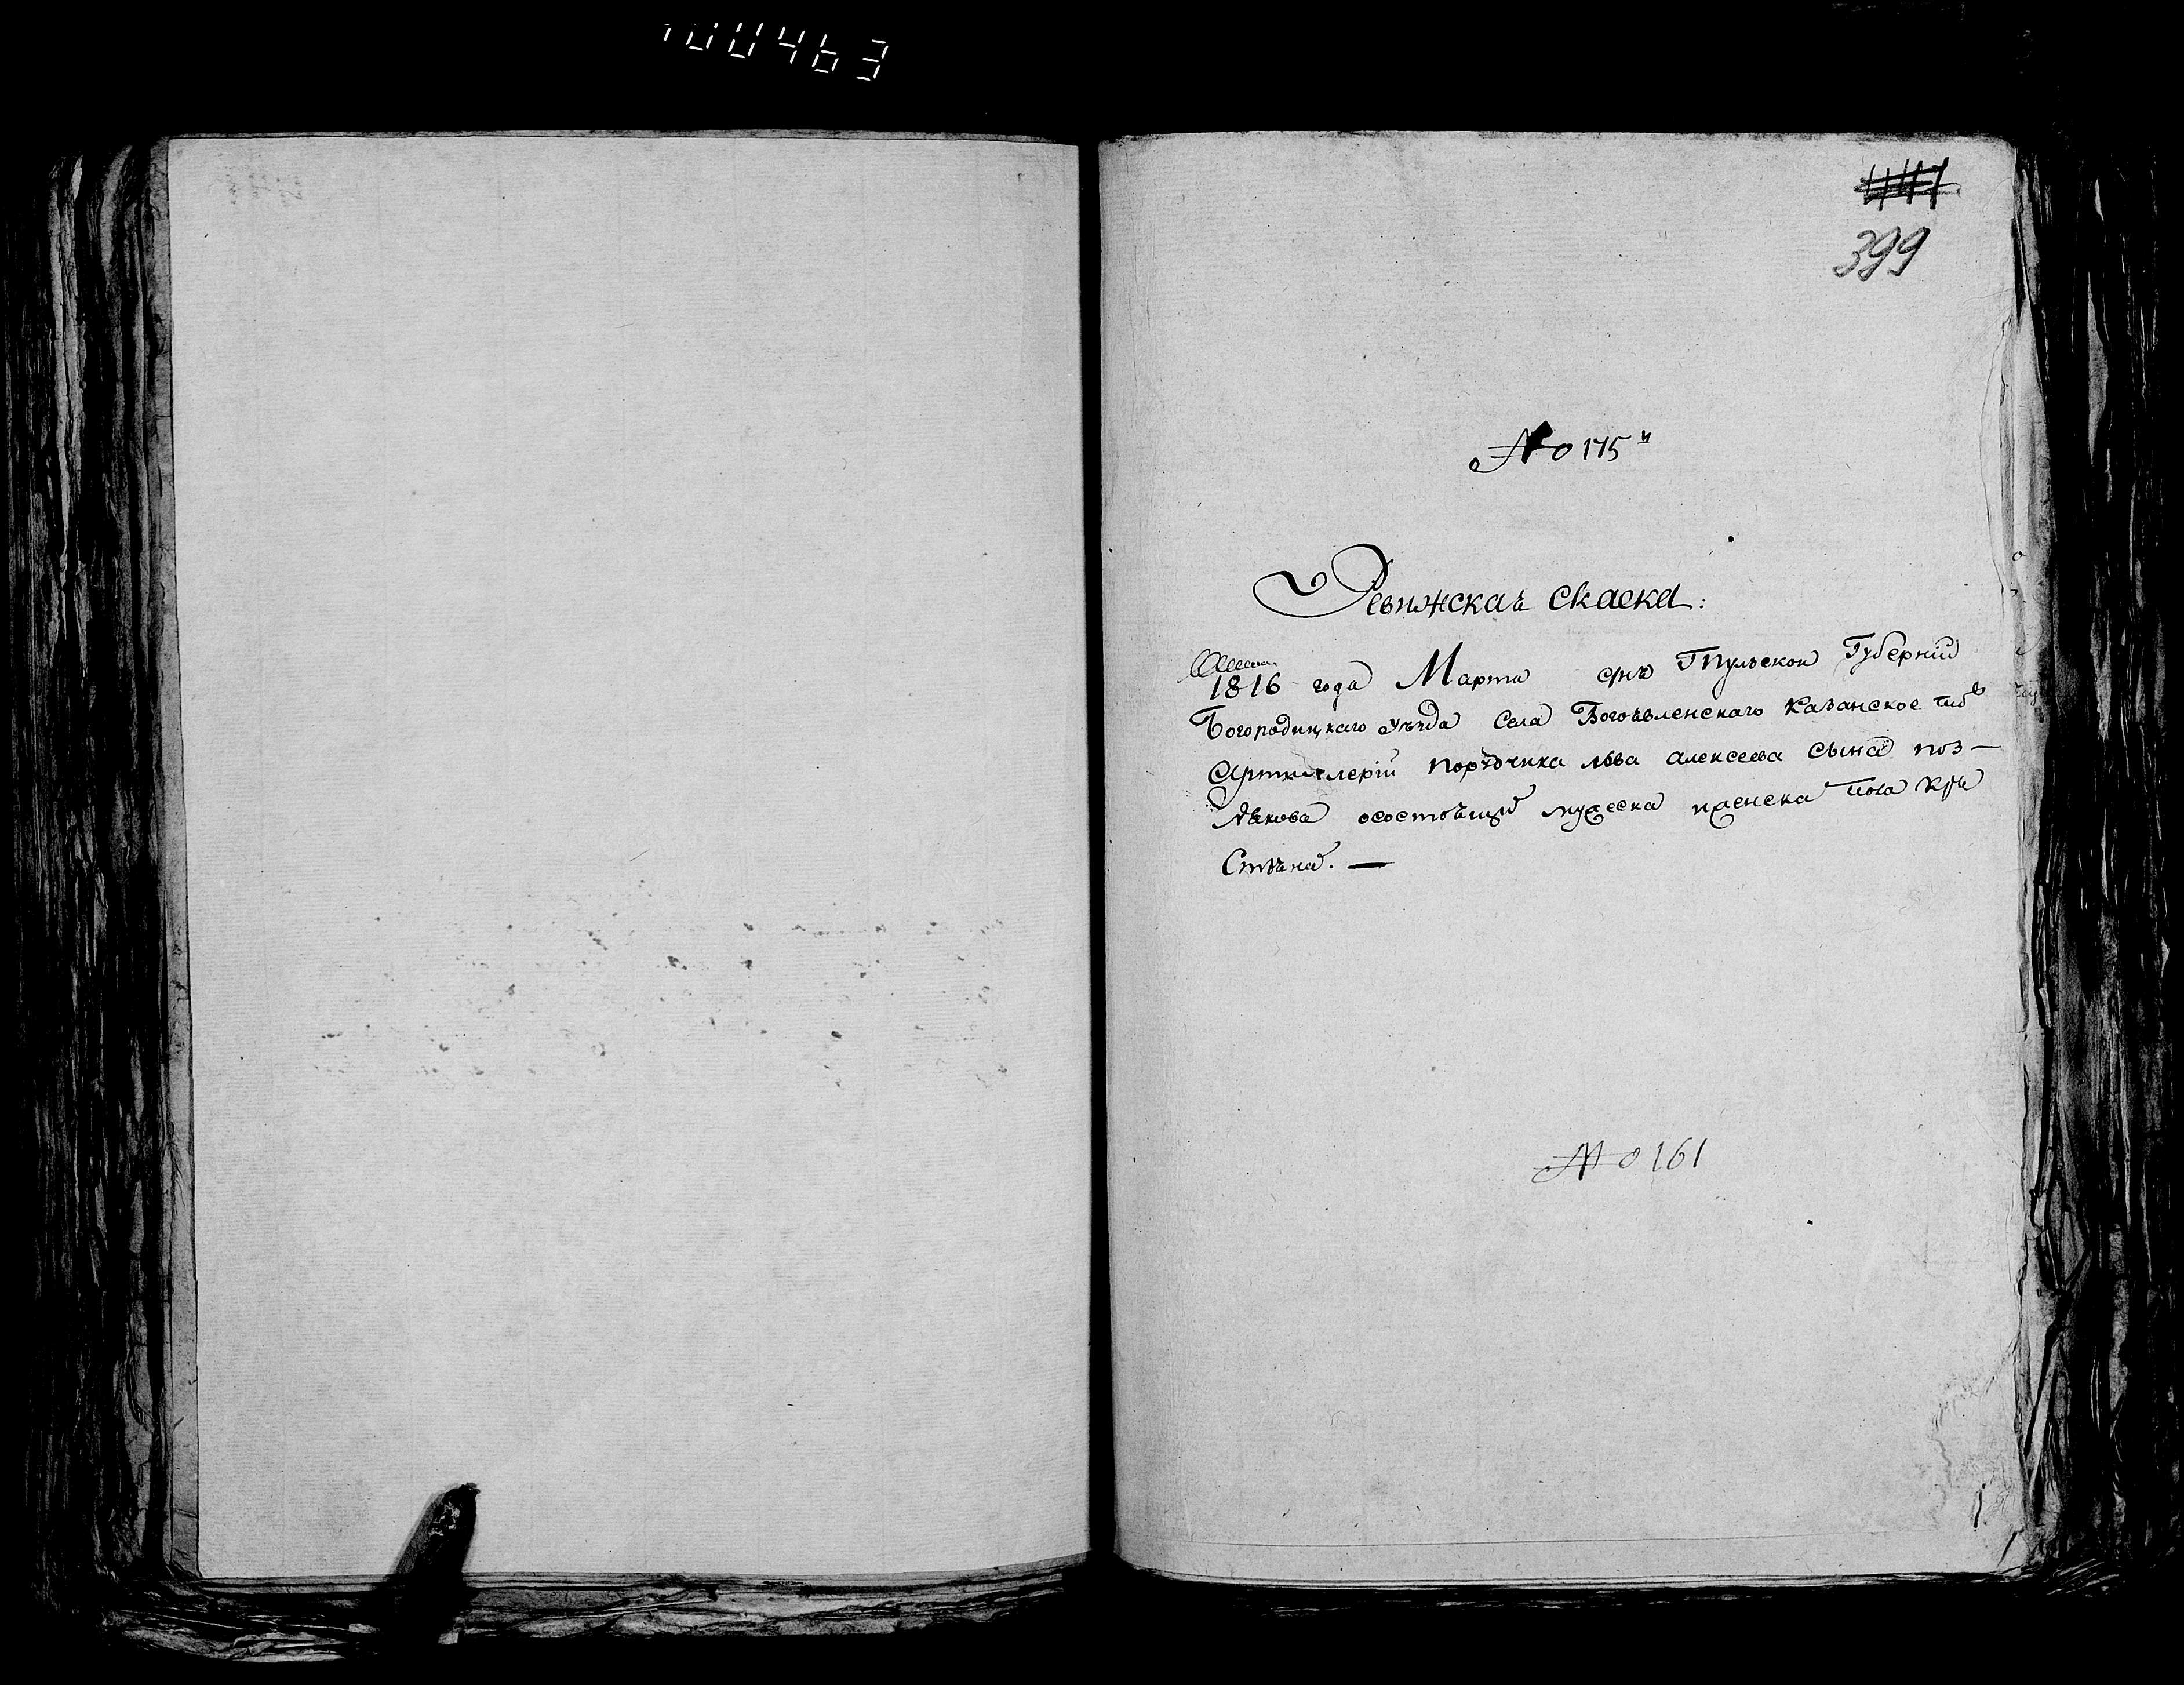 100463
399
№ 175й
Ревижская скаска:
1816 года Марта дня Тульской Губернии
Богородицкаго уезда села Богоявленскаго Казанское тиⷤ
Артиллерии порудчика льва алексеева сына поз—
дѣкова осостоящиⷯ мужеска иженска пола кре
стьянаⷯ. —
№ 161
1